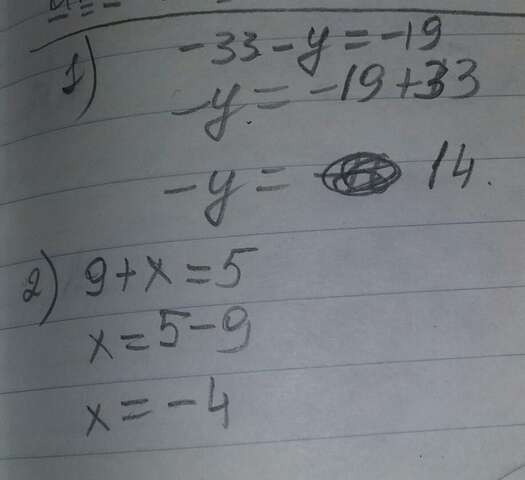 1) -33-y=-19
-y=-19+33
-y= 14.
2) 9+x=5
x=5-9
x=-4